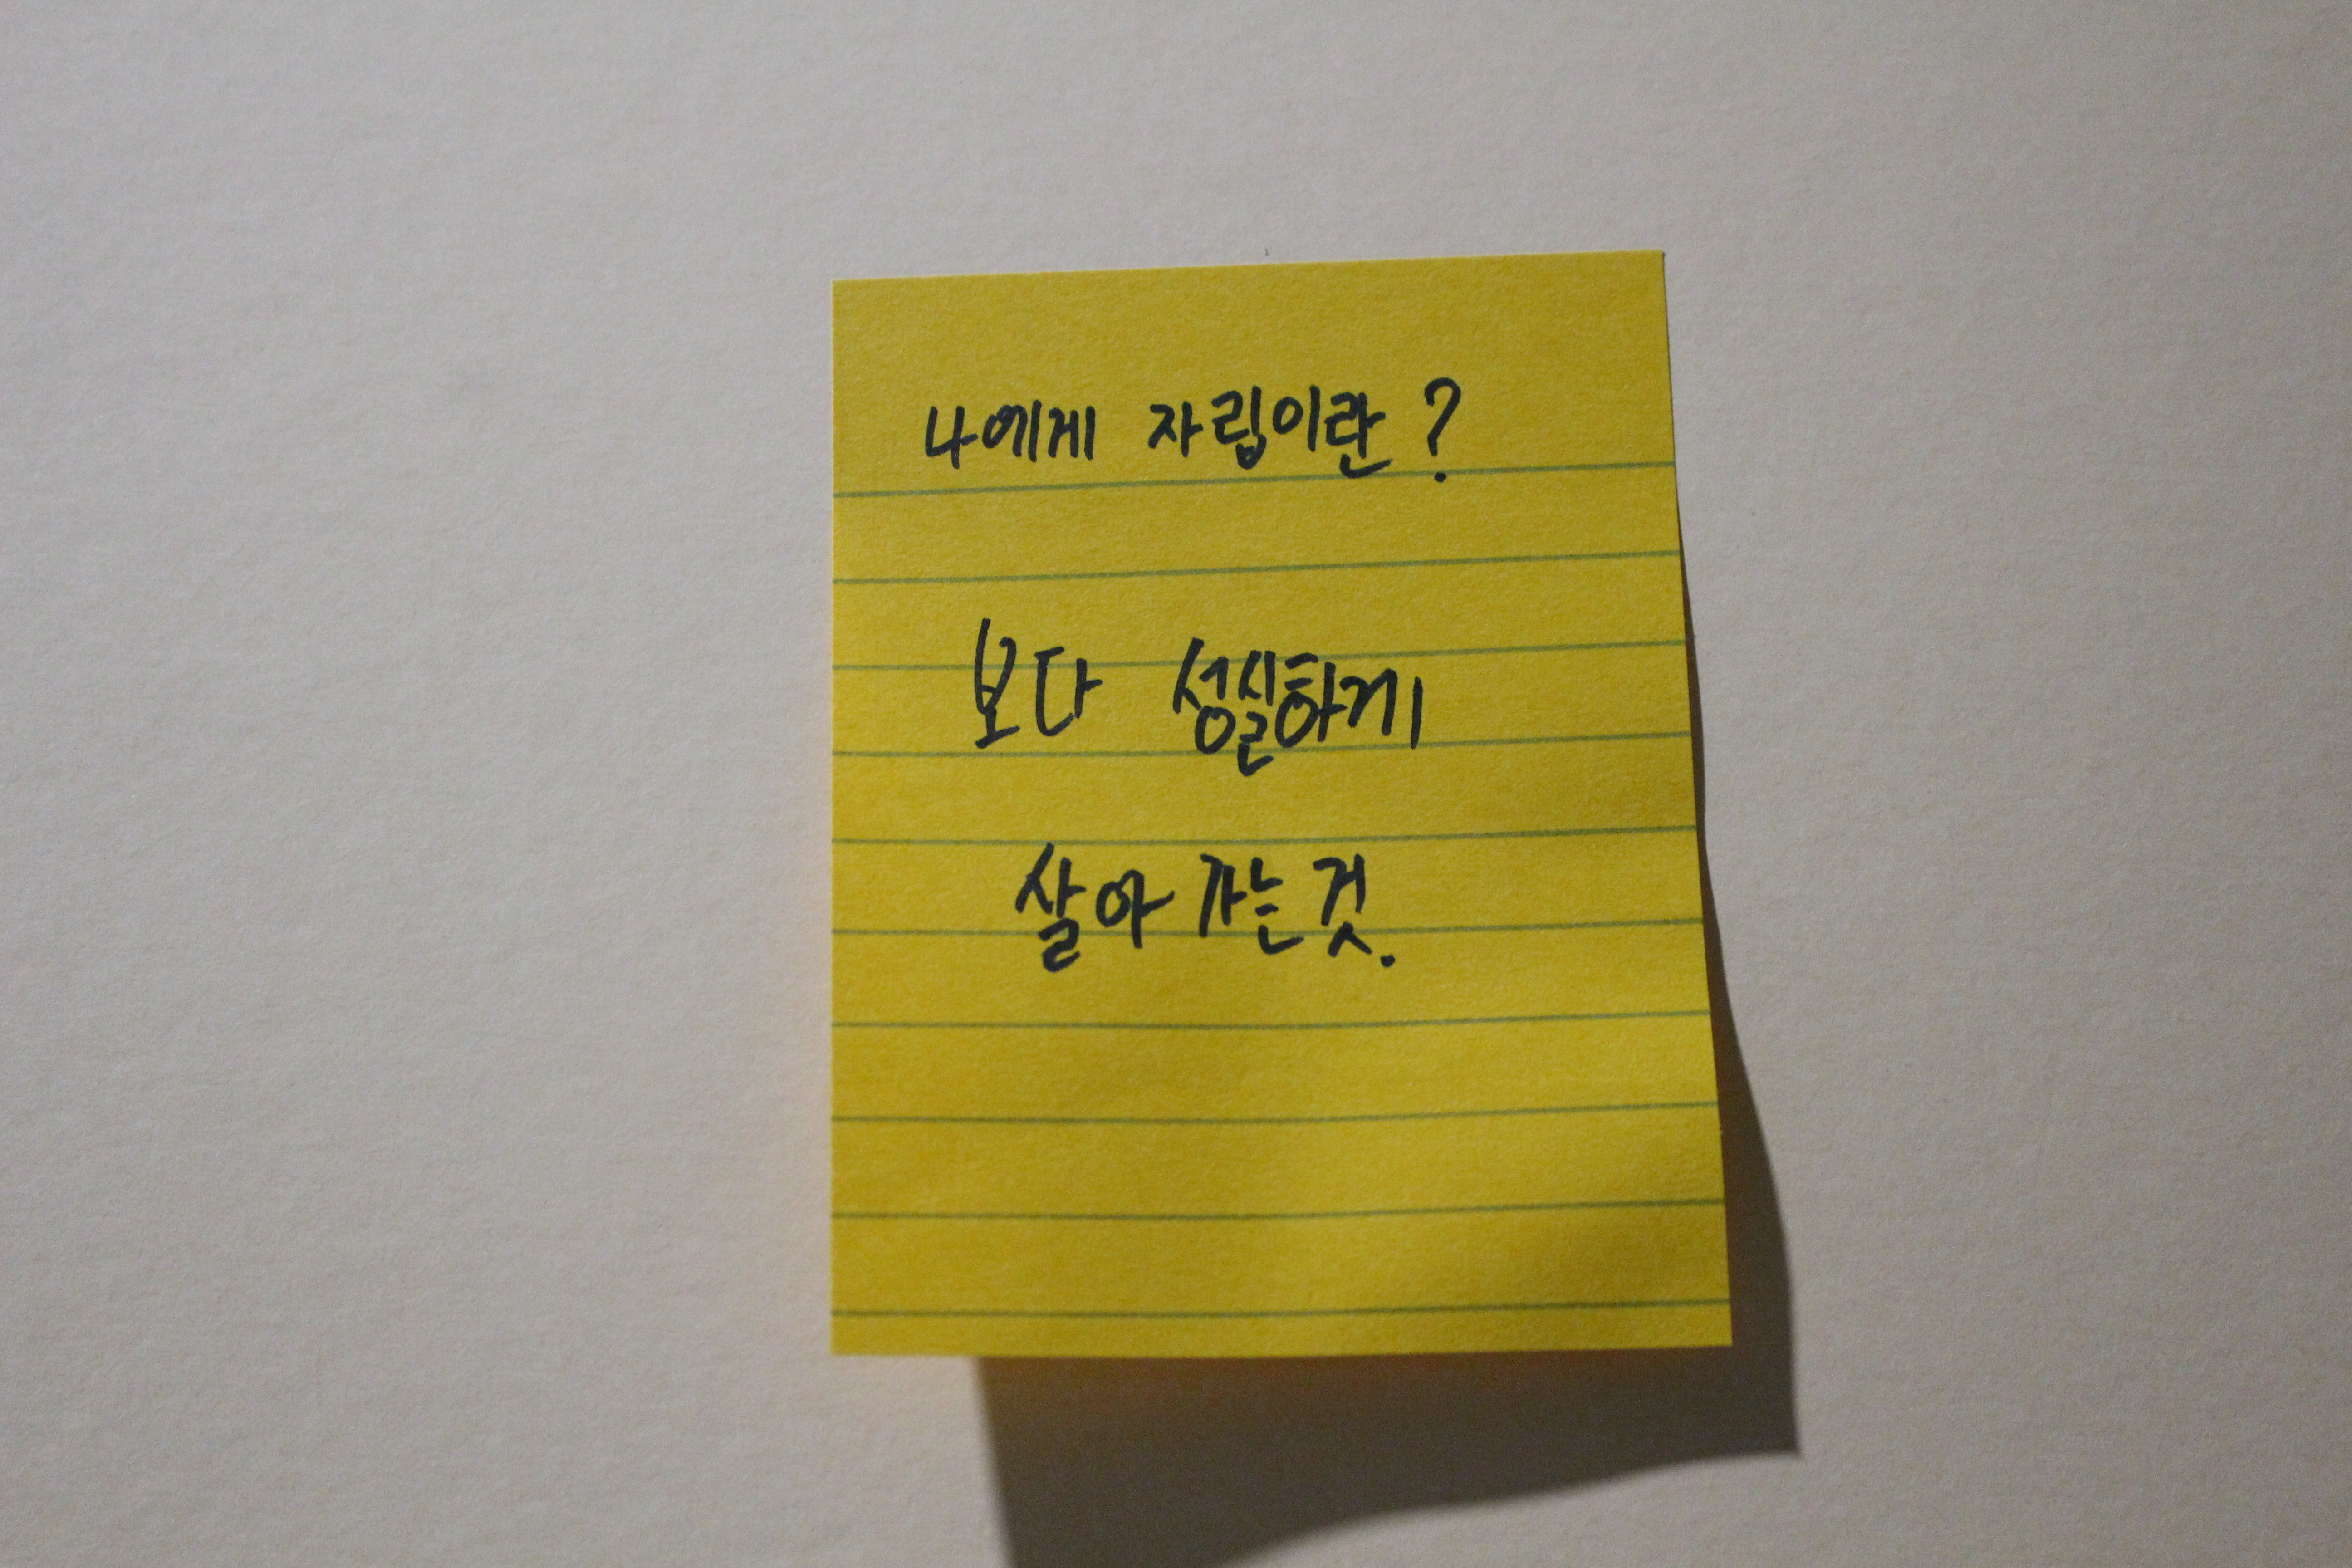 나에게 자립이란?
보다 성실하게
살아 가는것.